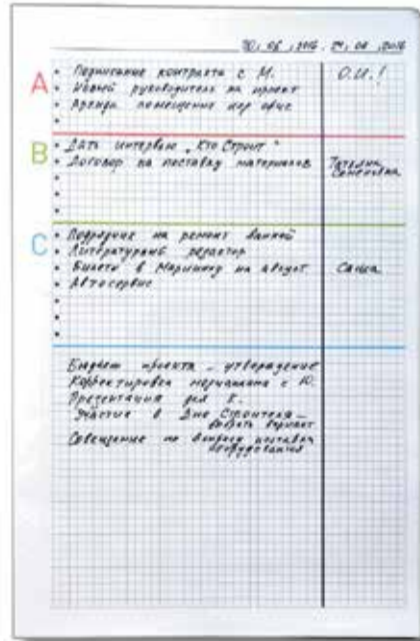 20.06.2016 - 24.06.2016
A
• Подписание контракта с М.
О.И.!
• Новый руководитель на проект
• Аренда помещение под офис
•
B
• Дать интервью „Кто Строит“
• Договор на поставку материалов
Татьяна Семеновна
•
•
•
C
• Подрядчик на ремонт ванной
• Литературный редактор
• Билеты в Мариинку на август
Саша
• Автосервис
•
•
•
Бюджет проекта – утверждение
Корректировка с Ю.
Презентация для К.
Участие в Дне Строителя –
выбрать вариант
Совещание по вопросу поставки
оборудования